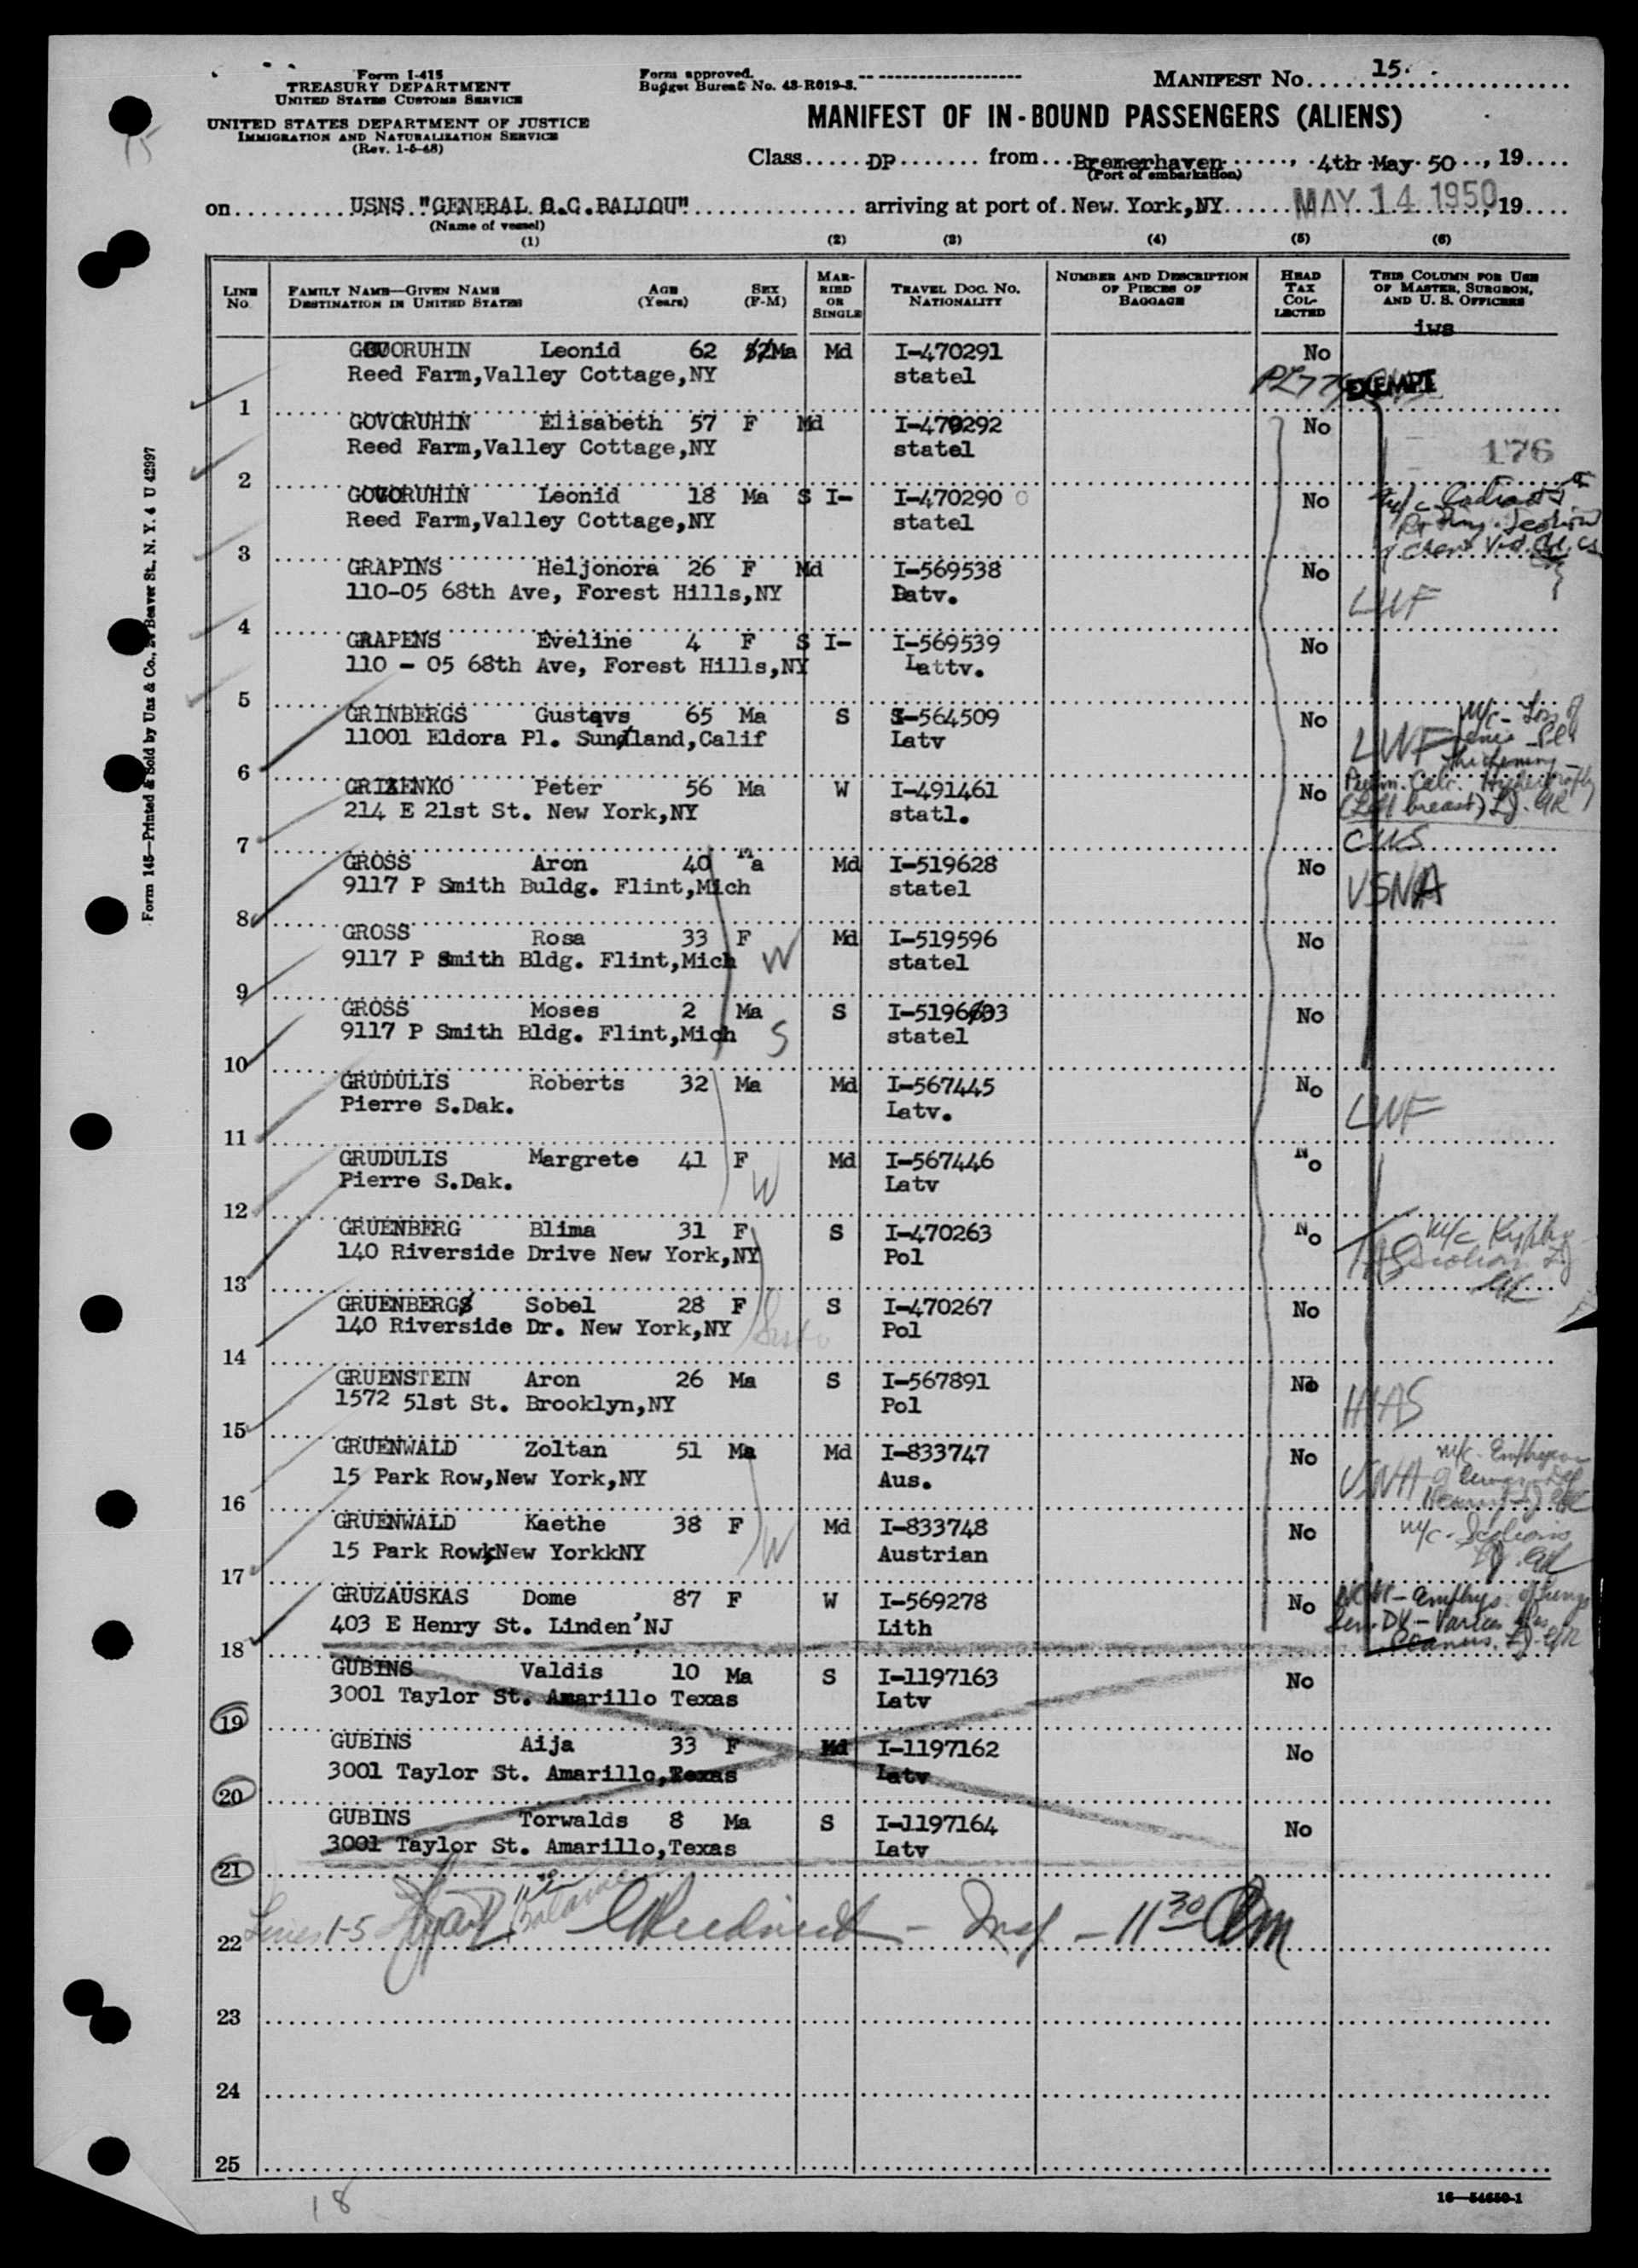 Form I-415
TREASURY DEPARTMENT
UNITED STATES CUSTOMS SERVICE
UNITED STATES DEPARTMENT OF JUSTICE
IMMIGRATION AND NATURALIZATION SERVICE
(Rev. 1-5-48)
Form approved.
Budget Bureau No. 43-R019-3.
MANIFEST No. 15.
MANIFEST OF IN-BOUND PASSENGERS (ALIENS)
Class DP from Bremerhaven, 4th May 50, 19
(Port of embarkation)
on USNS "GENERAL C.C.BALLOU" arriving at port of New York,NY MAY 14 1950, 19
(Name of vessel)
(1) (2) (3) (4) (5) (6)
LINE No. FAMILY NAME—GIVEN NAME DESTINATION IN UNITED STATES AGE (Years) SEX (F-M) MARRIED OR SINGLE TRAVEL DOC. NO. NATIONALITY NUMBER AND DESCRIPTION OF PIECES OF BAGGAGE HEAD TAX COLLECTED THIS COLUMN FOR USE OF MASTER, SURGEON, AND U. S. OFFICERS
iws
GOVORUHIN Leonid 62 Ma Md I-470291 No
Reed Farm,Valley Cottage,NY statel EXEMPT
1
GOVORUHIN Elisabeth 57 F Md I-470292 No
Reed Farm,Valley Cottage,NY statel 176
2
GOVORUHIN Leonid 18 Ma S I- I-470290 No
Reed Farm,Valley Cottage,NY statel
3
GRAPINS Heljonora 26 F Md I-569538 No
110-05 68th Ave, Forest Hills,NY Latv. LWF
4
GRAPENS Eveline 4 F S I- I-569539 No
110 - 05 68th Ave, Forest Hills,NY Lattv.
5
GRINBERGS Gustavs 65 Ma S I-564509 No
11001 Eldora Pl. Sunland,Calif Latv LWF
6
GRIZENKO Peter 56 Ma W I-491461 No
214 E 21st St. New York,NY statl. (Left breast)
7 CWS
GROSS Aron 40 Ma Md I-519628 No
9117 P Smith Buldg. Flint,Mich statel USNA
8
GROSS Rosa 33 F Md I-519596 No
9117 P Smith Bldg. Flint,Mich W statel
9
GROSS Moses 2 Ma S I-5196603 No
9117 P Smith Bldg. Flint,Mich S statel
10
GRUDULIS Roberts 32 Ma Md I-567445 No
Pierre S.Dak. Latv. LWF
11
GRUDULIS Margrete 41 F Md I-567446 No
Pierre S.Dak. W Latv
12
GRUENBERG Blima 31 F S I-470263 No
140 Riverside Drive New York,NY Pol
13
GRUENBERG Sobel 28 F S I-470267 No
140 Riverside Dr. New York,NY Pol
14
GRUENSTEIN Aron 26 Ma S I-567891 No
1572 51st St. Brooklyn,NY Pol HIAS
15
GRUENWALD Zoltan 51 Ma Md I-833747 No
15 Park Row,New York,NY Aus. USNA
16
GRUENWALD Kaethe 38 F Md I-833748 No
15 Park Row,New YorkkNY W Austrian
17
GRUZAUSKAS Dome 87 F W I-569278 No
403 E Henry St. Linden'NJ Lith
18
GUBINS Valdis 10 Ma S I-1197163 No
3001 Taylor St. Amarillo Texas Latv
19
GUBINS Aija 33 F Md I-1197162 No
3001 Taylor St. Amarillo,Texas Latv
20
GUBINS Torwalds 8 Ma S I-1197164 No
3001 Taylor St. Amarillo,Texas Latv
21
22 Lines 1-5 Insp - 11 30 Am
23
24
25
18
16—54650-1